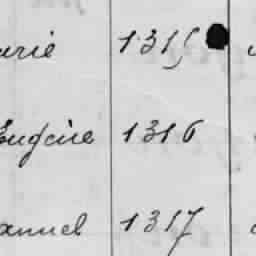 arie 1315
Eugénie 1316
annuel 1317